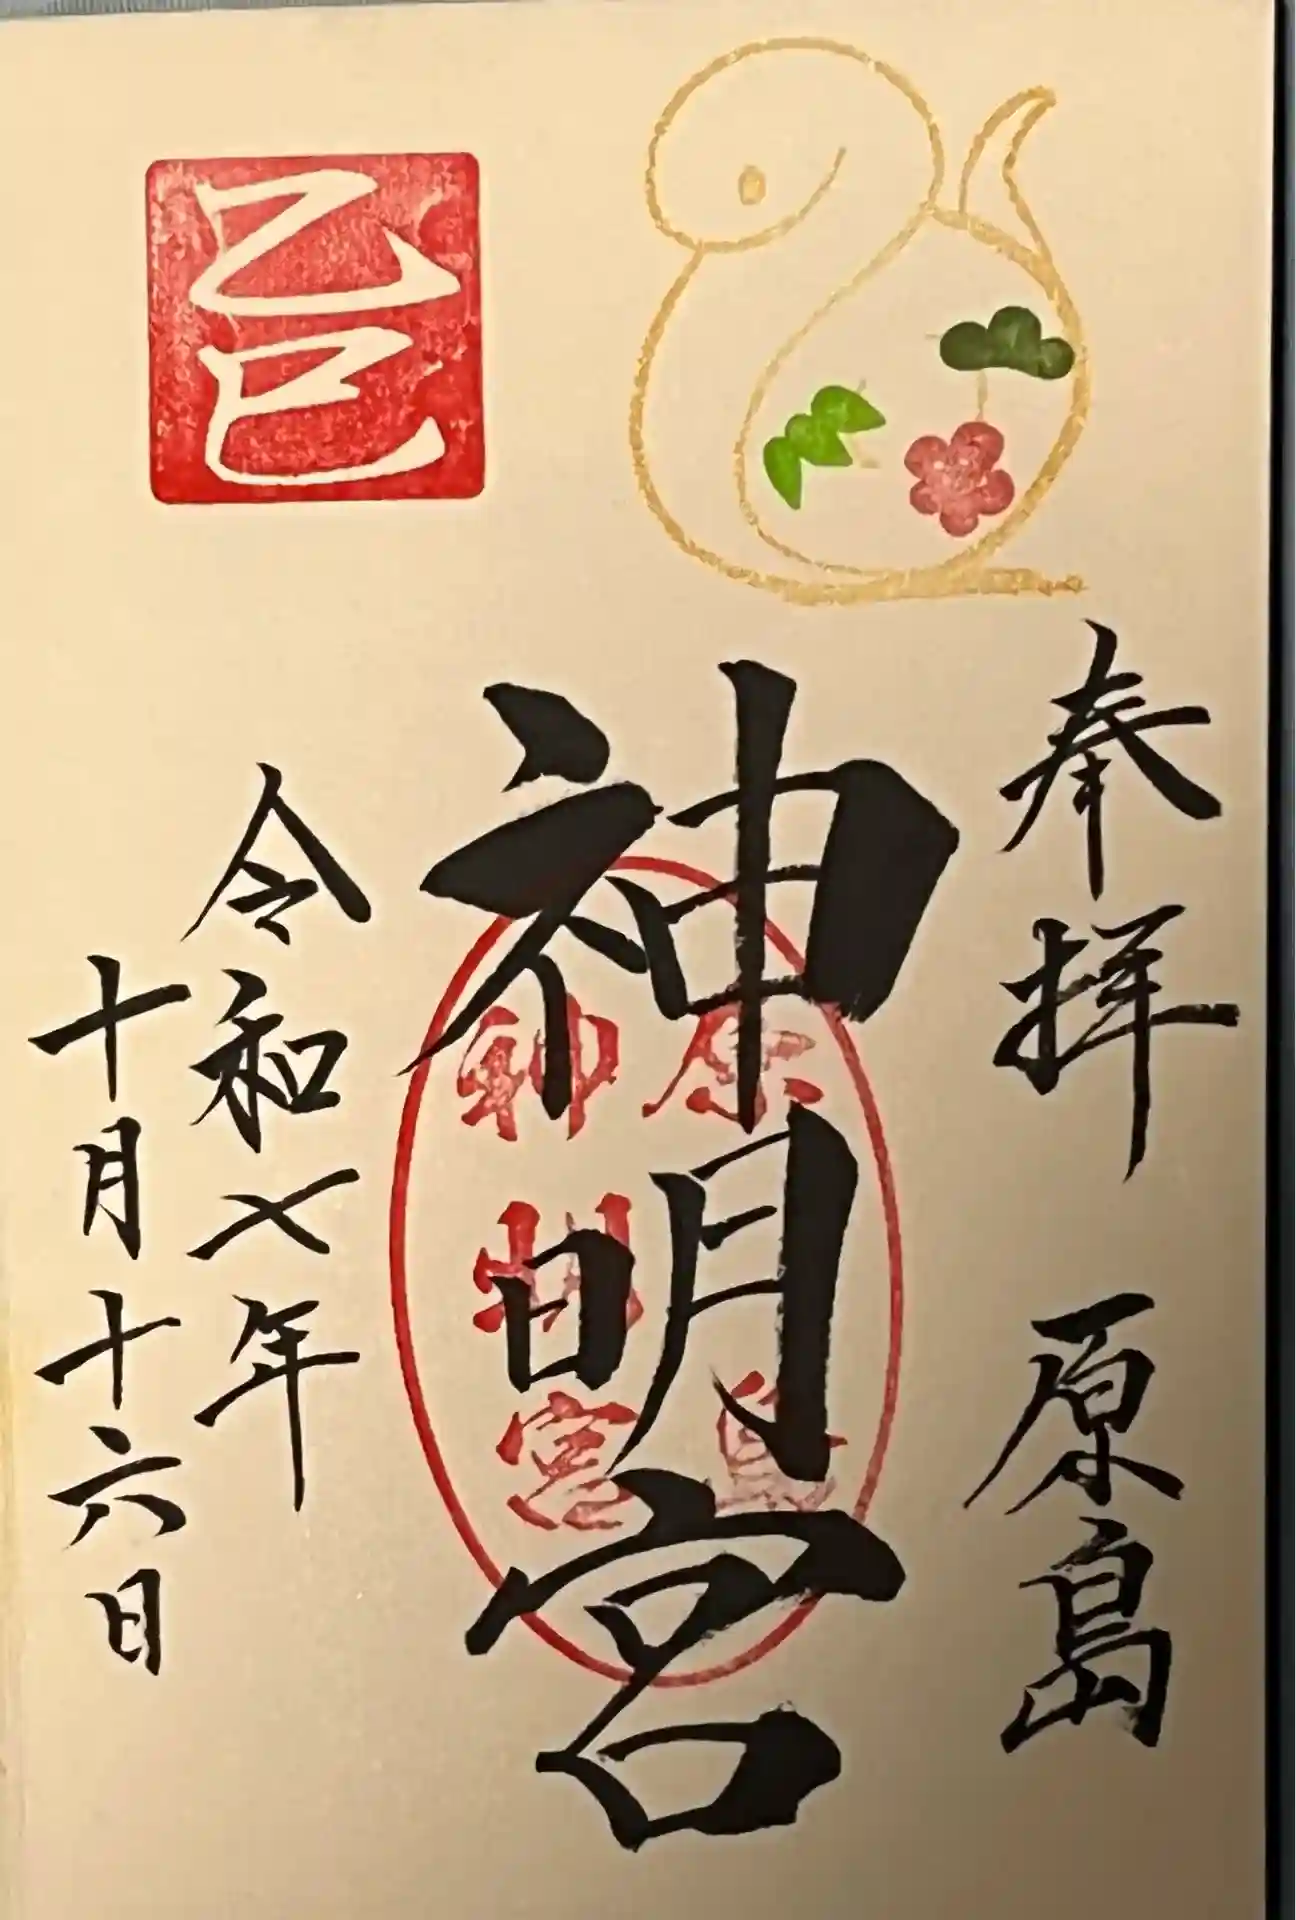 乙巳
奉拝 原島
神明宮
原島
神明宮
令和七年
十月十六日